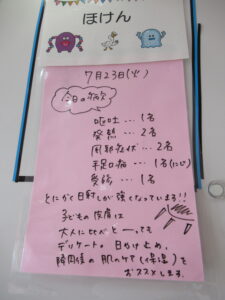 ほけん
7月23日(火)
今日の病欠
嘔吐…1名
発熱…2名
風邪症状…2名
手足口病…1名(にじ)
受診…1名
とにかく日射しが強くなっています!!
子どもの皮膚は
大人に比べと――っても
デリケート♡日かけ止め、
肌のケア(保湿)を
おススメします。